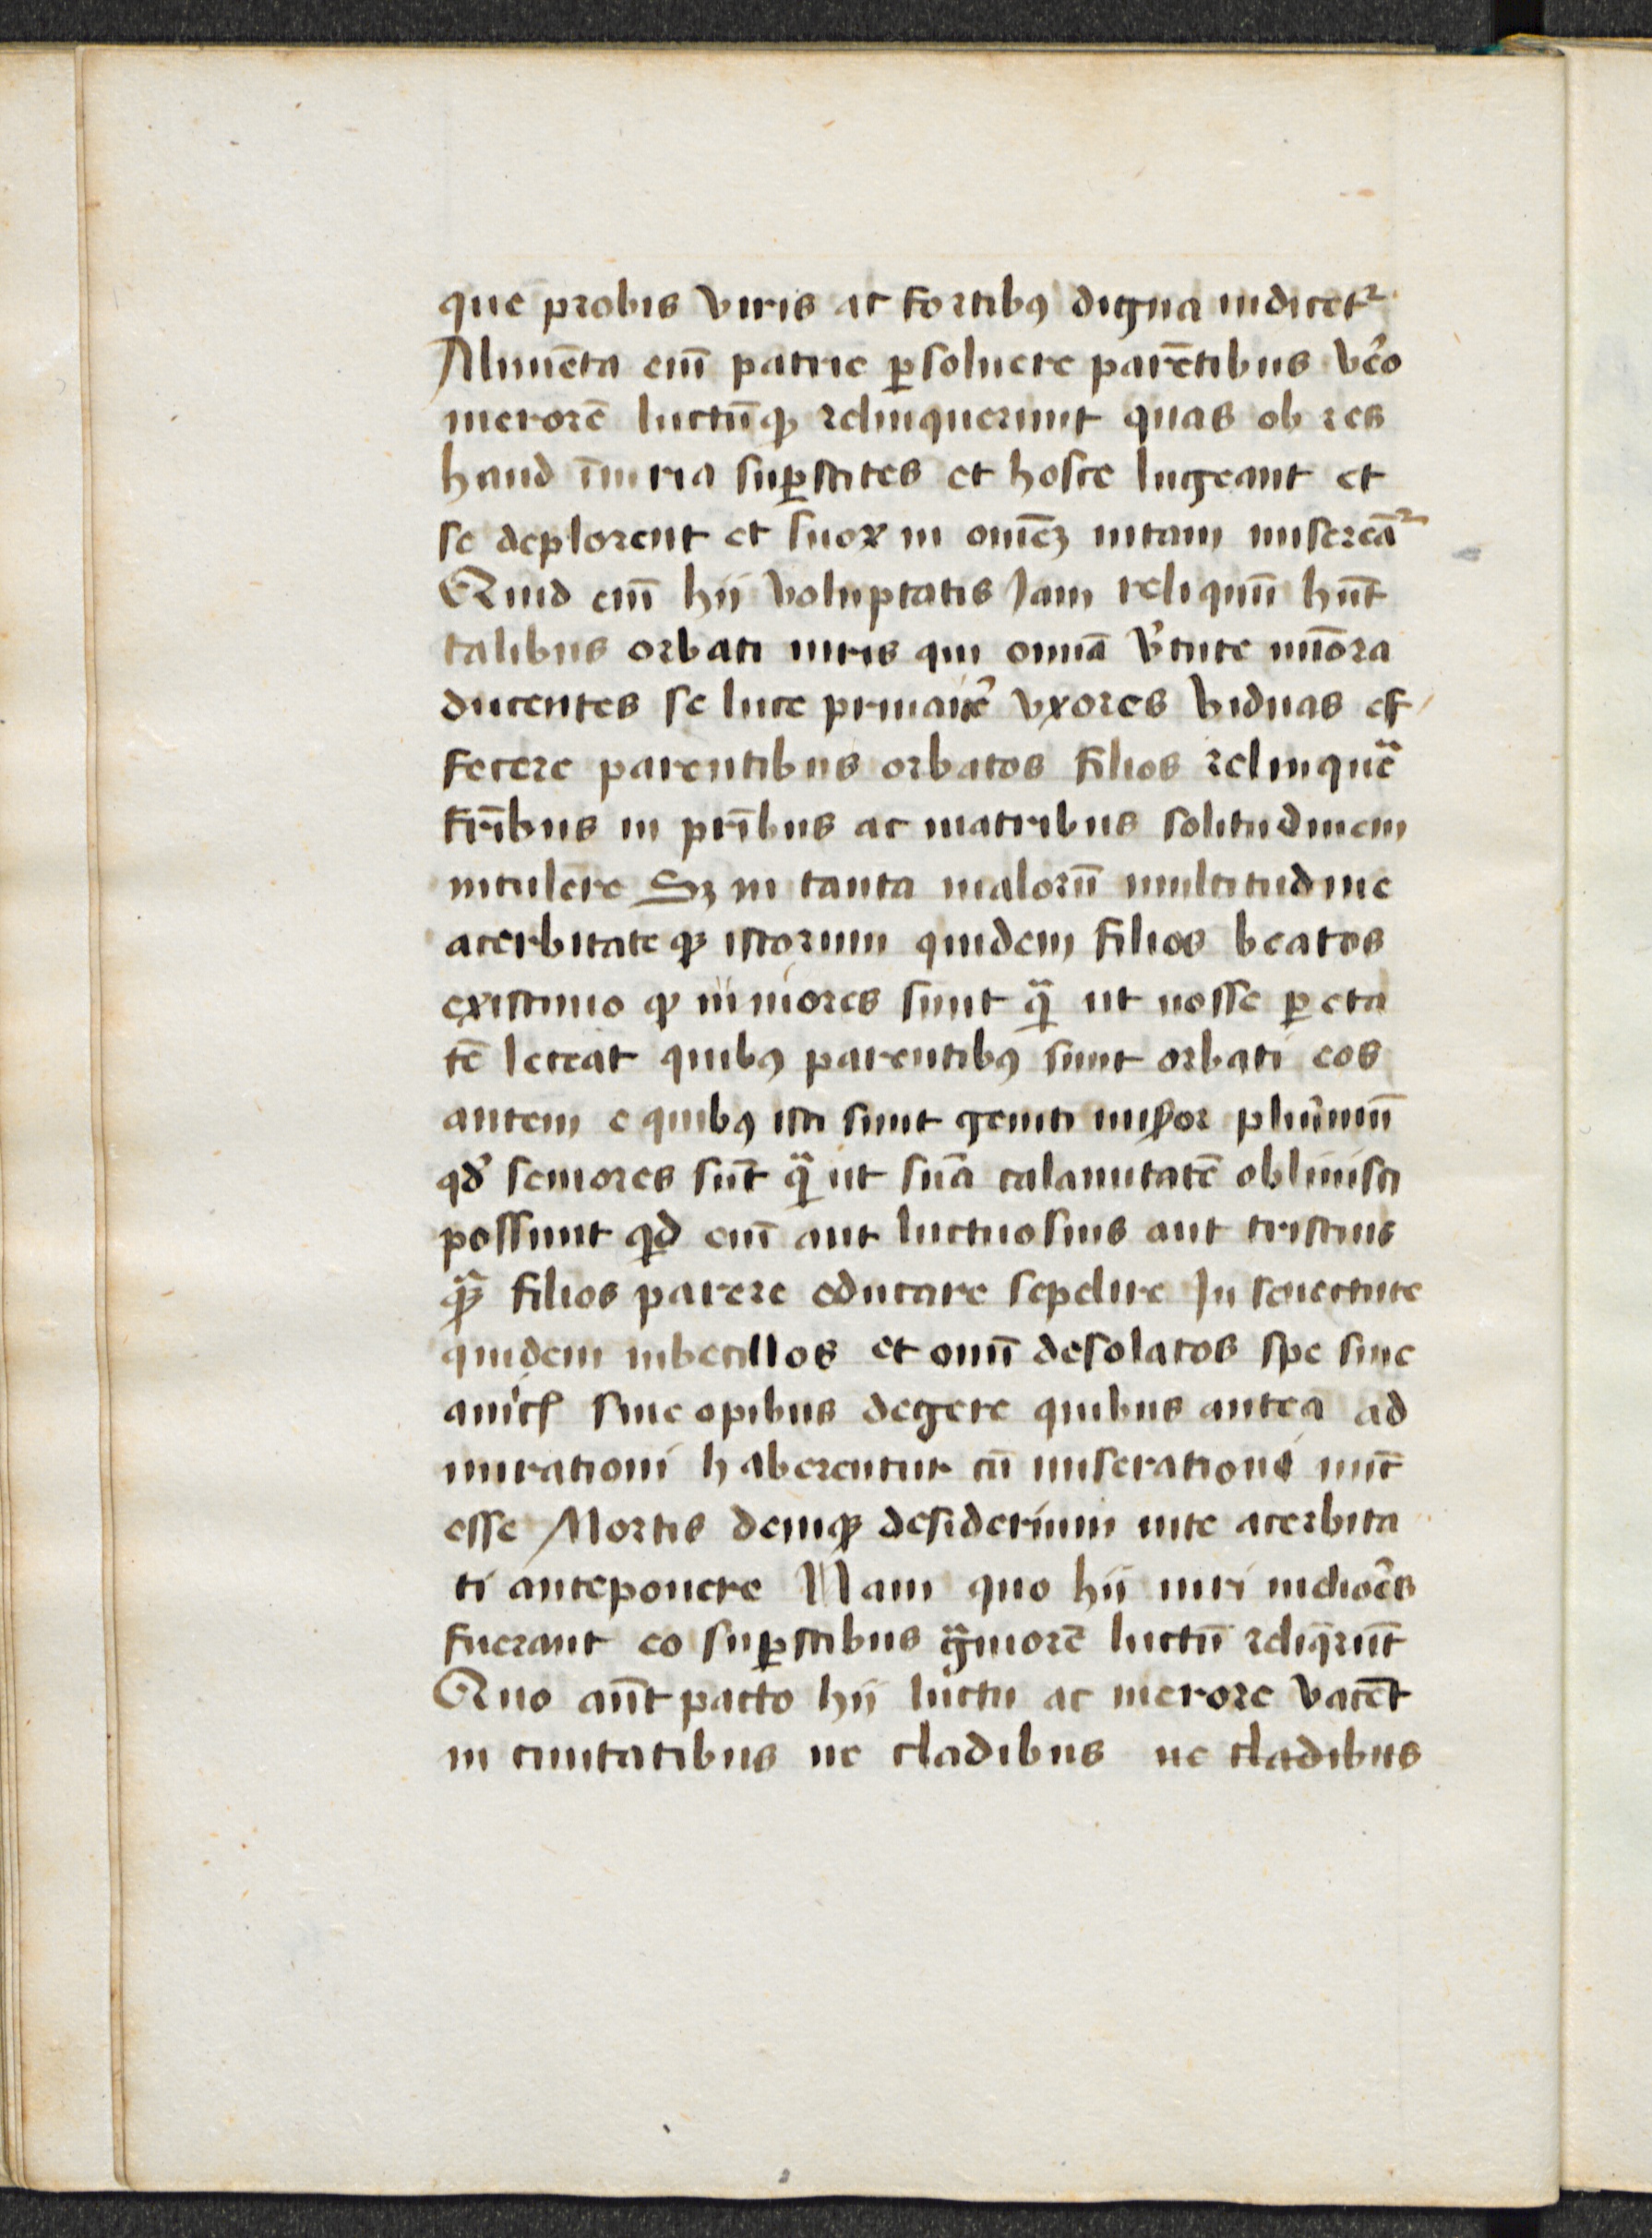 que probis viris ac fortibꝰ digna iudicetᷣ
Alimēta eni᷑ patrie ꝑsoluere parētibus vͤo
merorē luctūqꝫ relinquerunt quas ob res
haud īiuria suꝑstites et hosce lugeant et
se deplorent et suoꝝ in om̄eꝫ uitam misereāᷣ
Quid eni᷑ hii voluptatis Jam reliquū hn̄t
talibus orbati uiris qui omnia v̓tute mīora
ducentes se luce priuaūe᷑ vxores viduas ef
fecere parentibus orbatos filios relinquē
fr̄ibus in pr̄ibus ac matribus solitudinem
intulere Sꝫ in tanta malorū multitudine
acerbitateqꝫ istorum quidem filios beatos
existimo ꝙ iuniores sunt qͣ ut nosse ꝑ eta
tē leceat quibꝰ parentibꝰ sunt orbati eos
autem e quibꝰ isti sunt geniti miẜor plurimū
qd̓ seniores sūt qͣ ut suā calamitatē obliuisci
possunt qͥd eni᷑ aut luctuosius aut tristius
qͣꝫ filios parere educare sepelire In senectute
quidem inbecillos et omī desolatos spe sine
amicꝭ sine opibus degere quibus antea ad
mirationi haberentur cū miserationi nūc
esse Mortis deniqꝫ desiderium uite acerbita
ti anteponere Nam quo hii uiri melioēs
fuerant eo suꝑstibus gͣuiorē luctū reliqͥrūt
Quo aūt pacto hii luctu ac merore vacēt
in ciuitatibus ne cladibus ne cladibus